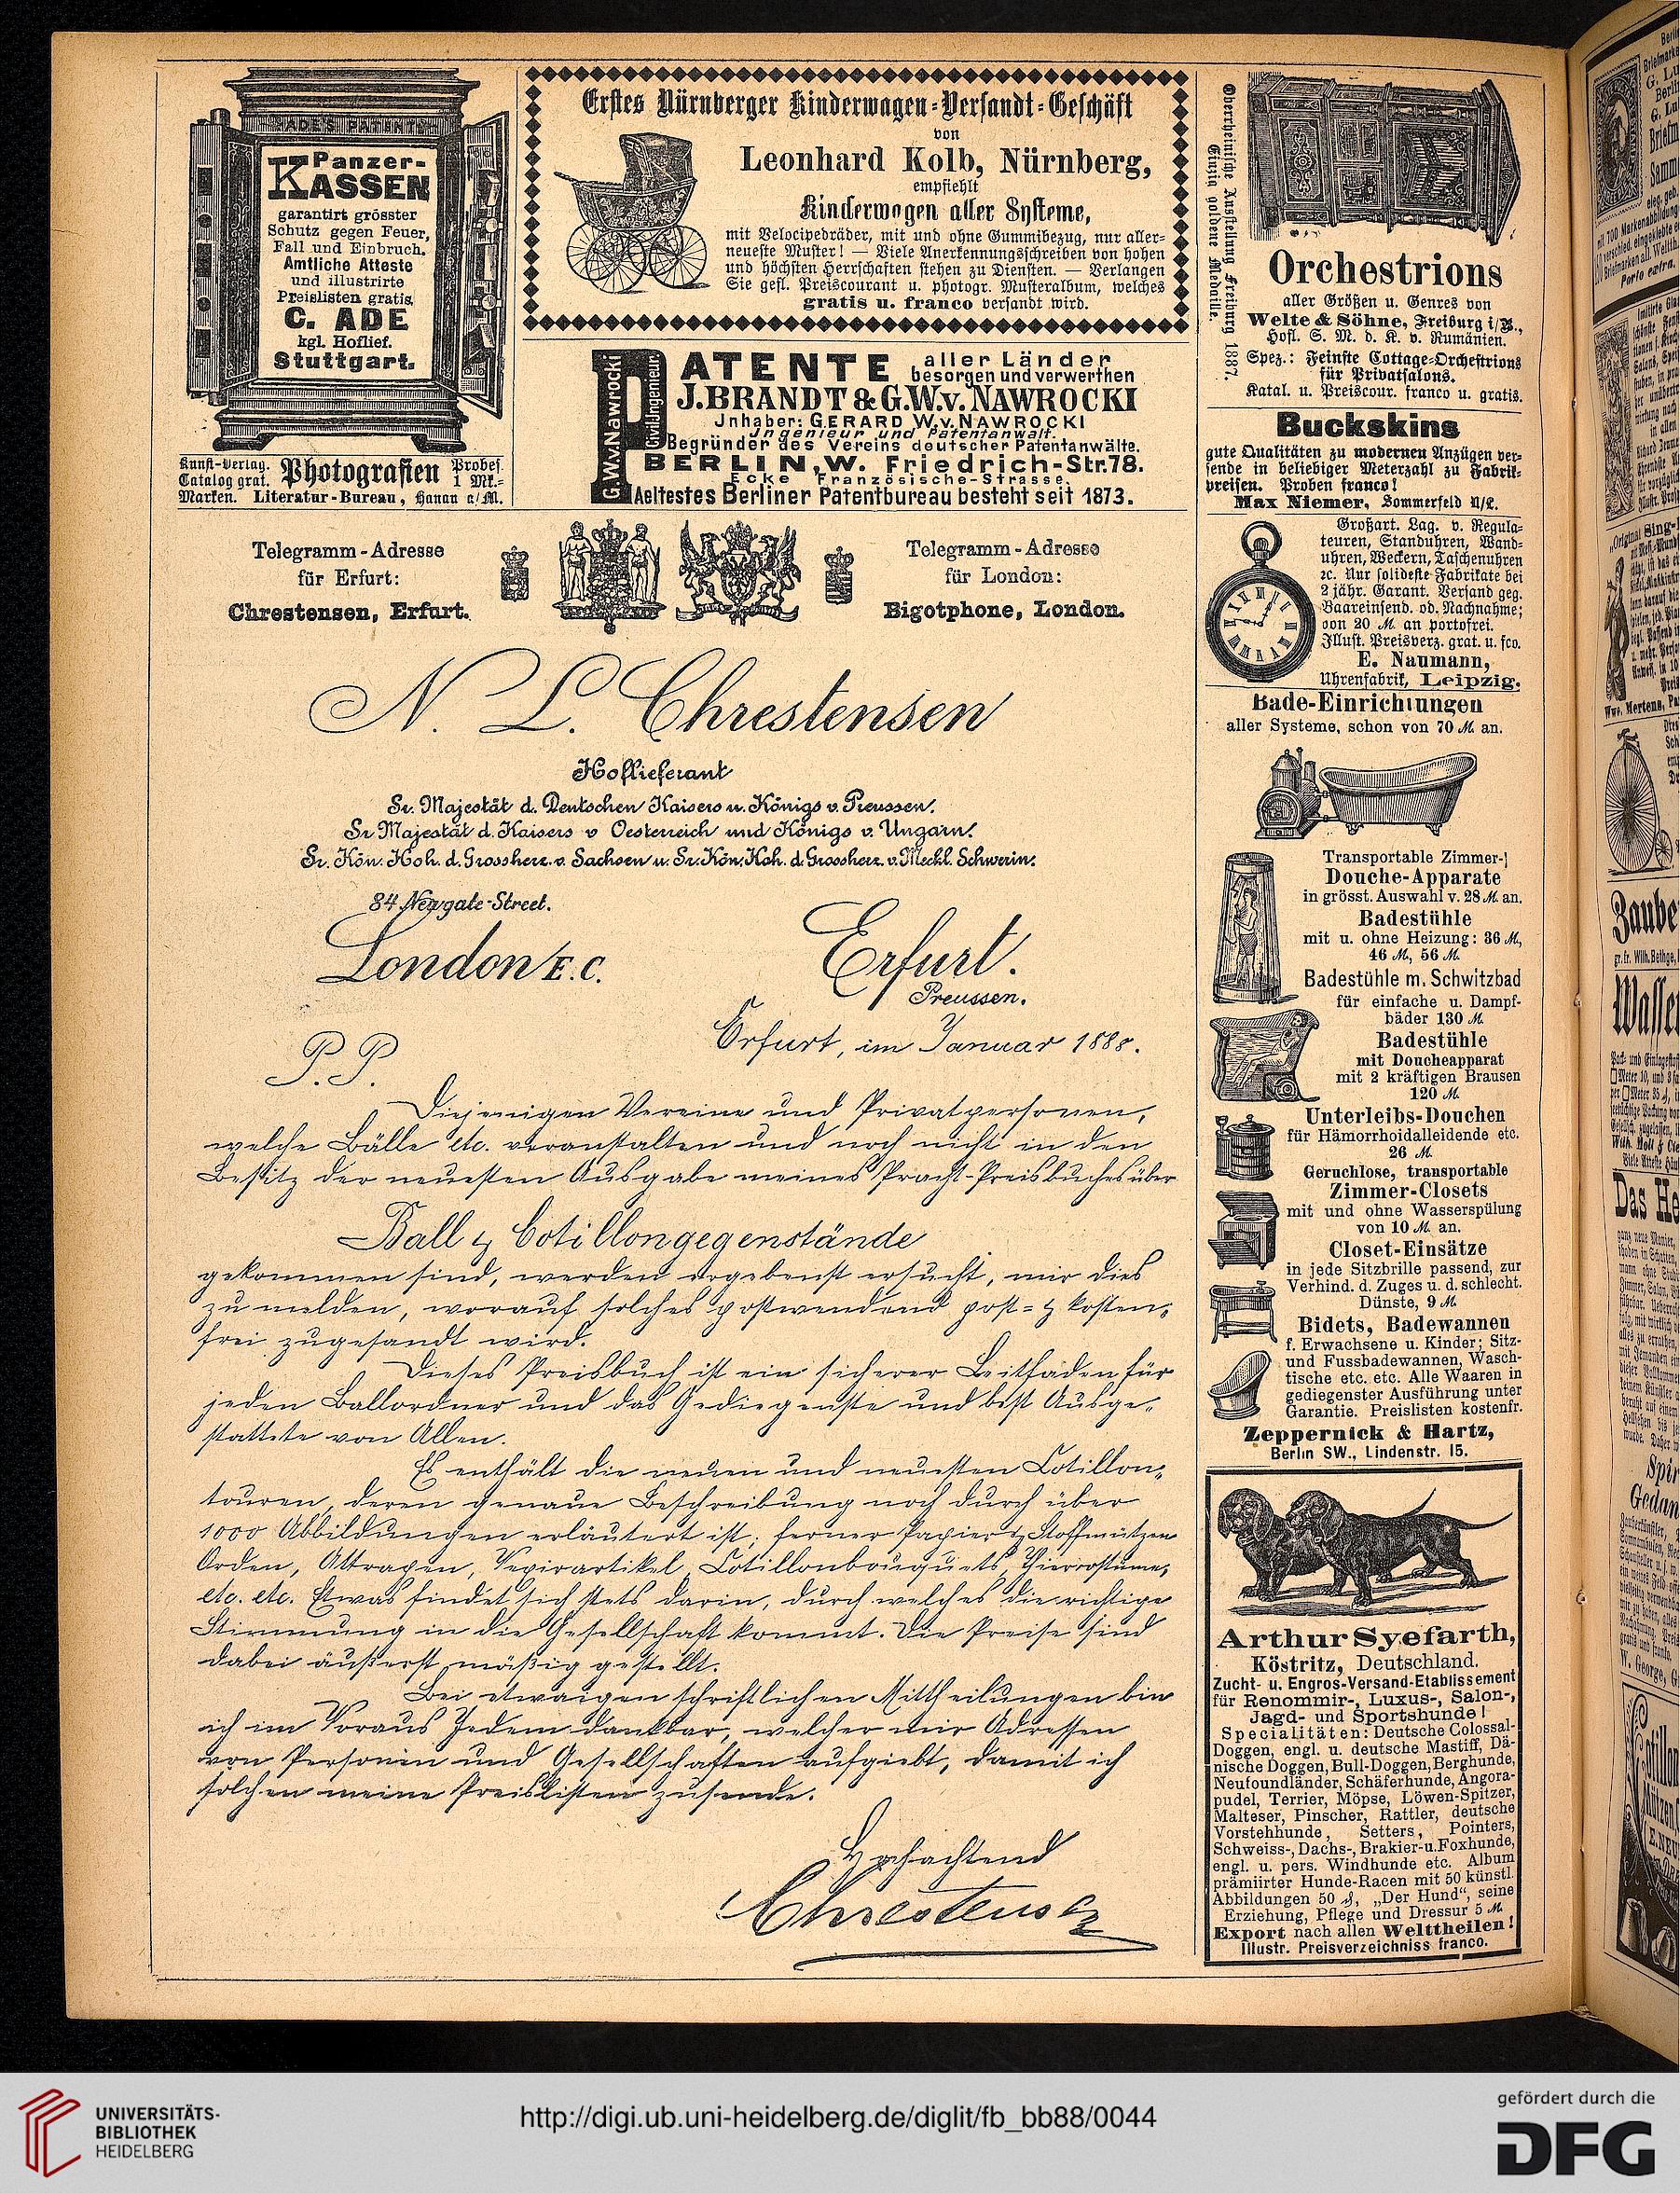 ADE'S PATENT
Panzer-
KASSEN
garantirt grösster
Schutz gegen Feuer,
Fall und Einbruch.
Amtliche Atteste
und illustrirte
Preislisten gratis.
C. ADE
kgl. Hoflief.
Stuttgart.
Kunst-Verlag.
Catalog grat.
Marken.
Photografien
Probes.
1 Mk.=
Literatur-Bureau, Hanau a/M.
Erstes Nürnberger Kinderwagen-Versandt-Geschäft
von
Leonhard Kolb, Nürnberg,
empfiehlt
Kinderwagen aller Systeme,
mit Velocipedräder, mit und ohne Gummibezug, nur aller-
neueste Muster! — Viele Anerkennungsschreiben von hohen
und höchsten Herrschaften stehen zu Diensten. — Verlangen
Sie gefl. Preiscourant u. photogr. Musteralbum, welches
gratis u. franco versandt wird.
PATENTE
aller Länder
besorgen und verwerthen
J. BRANDT & G.W.v. NAWROCKI
Jnhaber: GERARD W.v. NAWROCKI
Jngenieur und Patentanwalt.
Begründer des Vereins deutscher Patentanwälte.
BERLIN, W. Friedrich-Str. 78.
Ecke Französische-Strasse.
Aeltestes Berliner Patentbureau besteht seit 1873.
G.W.v.Nawrocki
CivilJngenieur
Telegramm-Adresse
für Erfurt:
Chrestensen, Erfurt.
Telegramm-Adresse
für London:
Bigotphone, London.
N. L. Chrestensen
Hoflieferant
Sr. Majestät d. Deutschen Kaisers u. Königs v. Preussen.
Sr. Majestät d. Kaisers v. Oesterreich und Königs v. Ungarn.
Sr. Kön. Hoh. d. Grossherz. v. Sachsen u. Sr. Kön. Hoh. d. Grossherz. v. Meckl. Schwerin.
84 Newgate-Street.
London E.C.
Erfurt.
Preussen.
Erfurt, im Januar 1888.
P.P.
Diejenigen Vereine und Privatpersonen,
welche Bälle etc. veranstalten und noch nicht in den
Besitz der neuesten Ausgabe meines Pracht-Preisbuches über
Ball & Cotillongegenstände
gekommen sind, werden ergebenst ersucht, mir dies
zu melden, worauf solches postwendend post= & kosten=
frei zugesandt wird.
Dieses Preisbuch ist ein sicherer Leitfaden für
jeden Ballordner und das Gediegenste und best Ausge=
stattete von Allen.
Es enthält die neuen und neuesten Cotillon=
touren, deren genaue Beschreibung noch durch über
1000 Abbildungen erläutert ist; ferner Papier & Stoffmützen
Orden, Attrapen, Vexirartikel, Cotillonbouquets, Thiercostüme,
etc. etc. Etwas findet sich stets darin, durch welches die richtige
Stimmung in die Gesellschaft kommt. Die Preise sind
dabei äußerst mäßig gestellt.
Bei etwaigen schriftlichen Mittheilungen bin
ich im Voraus Jedem dankbar, welcher mir Adressen
von Personen und Gesellschaften aufgiebt, damit ich
solchen meine Preislisten zusende.
Hochachtend
Chrestensen
Oberrheinische Ausstellung Freiburg 1887.
Einzig goldene Medaille.
Orchestrions
aller Größen u. Genres von
Welte & Söhne, Freiburg i/B.,
Hofl. S. M. d. K. v. Rumänien.
Spez.: Feinste Cottage-Orchestrions
für Privatsalons.
Katal. u. Preiscour. franco u. gratis.
Buckskins
gute Qualitäten zu modernen Anzügen ver-
sende in beliebiger Meterzahl zu Fabrik-
preisen. Proben franco!
Max Niemer, Sommerfeld N/L.
Großart. Lag. v. Regula-
teuren, Standuhren, Wand-
uhren, Weckern, Taschenuhren
2c. Nur solideste Fabrikate bei
2 jähr. Garant. Versand geg.
Baareinsend. od. Nachnahme;
von 20 M. an portofrei.
Illust. Preisverz. grat. u. fco.
E. Naumann,
Uhrenfabrik, Leipzig.
Bade-Einrichtungen
aller Systeme, schon von 70 M. an.
Transportable Zimmer-
Douche-Apparate
in grösst. Auswahl v. 28 M. an.
Badestühle
mit u. ohne Heizung: 36 M,
46 M, 56 M.
Badestühle m. Schwitzbad
für einfache u. Dampf-
bäder 130 M.
Badestühle
mit Doucheapparat
mit 2 kräftigen Brausen
120 M.
Unterleibs-Douchen
für Hämorrhoidalleidende etc.
26 M.
Geruchlose, transportable
Zimmer-Closets
mit und ohne Wasserspülung
von 10 M. an.
Closet-Einsätze
in jede Sitzbrille passend, zur
Verhind. d. Zuges u. d. schlecht.
Dünste, 9 M.
Bidets, Badewannen
f. Erwachsene u. Kinder; Sitz-
und Fussbadewannen, Wasch-
tische etc. etc. Alle Waaren in
gediegenster Ausführung unter
Garantie. Preislisten kostenfr.
Zeppernick & Hartz,
Berlin SW., Lindenstr. 15.
Arthur Syefarth,
Köstritz, Deutschland.
Zucht- u. Engros-Versand-Etablissement
für Renommir-, Luxus-, Salon-,
Jagd- und Sportshunde!
Specialitäten: Deutsche Colossal-
Doggen, engl. u. deutsche Mastiff, Dä-
nische Doggen, Bull-Doggen, Berghunde,
Neufoundländer, Schäferhunde, Angora-
pudel, Terrier, Möpse, Löwen-Spitzer,
Malteser, Pinscher, Rattler, deutsche
Vorstehhunde, Setters, Pointers,
Schweiss-, Dachs-, Brakier- u. Foxhunde,
engl. u. pers. Windhunde etc. Album
prämiirter Hunde-Racen mit 50 künstl.
Abbildungen 50 ₰, „Der Hund“, seine
Erziehung, Pflege und Dressur 5 M.
Export nach allen Welttheilen!
Illustr. Preisverzeichniss franco.
UNIVERSITÄTS-
BIBLIOTHEK
HEIDELBERG
http://digi.ub.uni-heidelberg.de/diglit/fb_bb88/0044
gefördert durch die
DFG